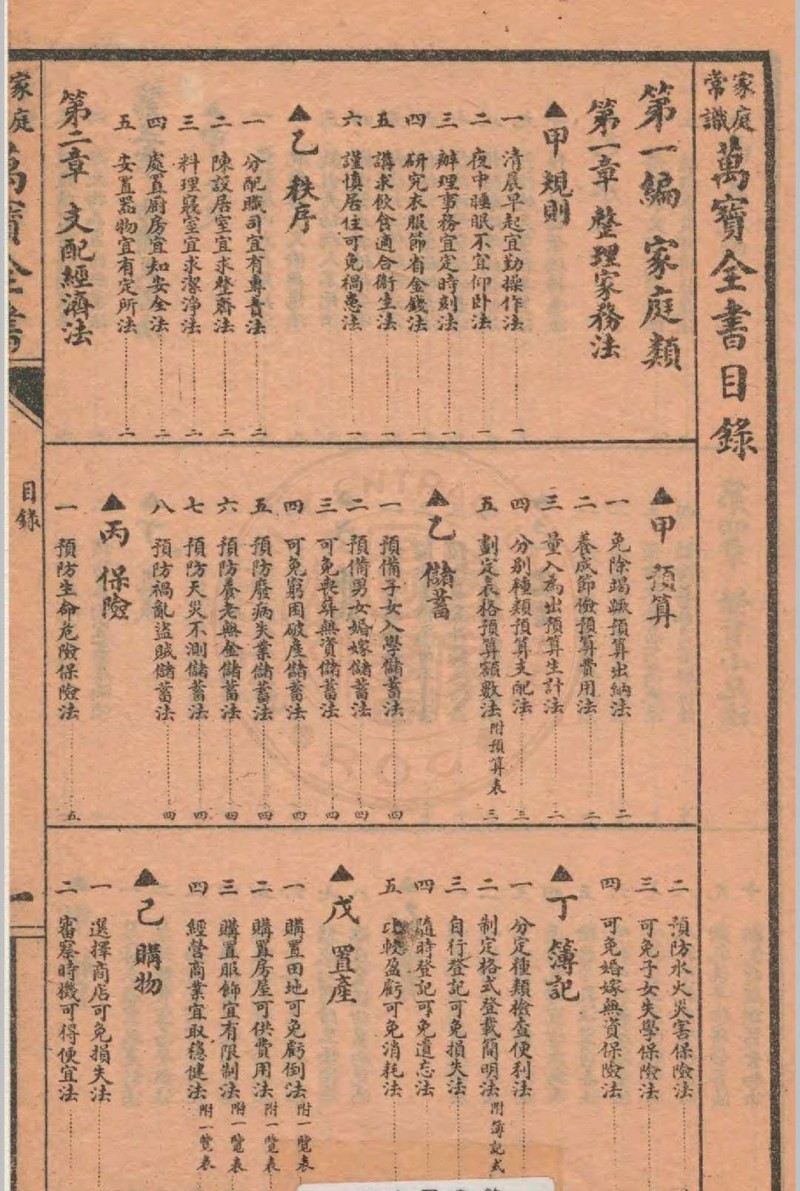 家庭常識 萬寶全書目錄
第一編 家庭類
第一章 整理家務法
▲甲 規則
一 清晨早起宜勤操作法 一
二 夜中睡眠不宜仰卧法 一
三 辦理事務宜定時刻法 一
四 研究衣服節省金錢法 一
五 講求飲食適合衛生法 一
六 謹慎居住可免禍患法 一
▲乙 秩序
一 分配職司宜有專責法 二
二 陳設居室宜求整齊法 二
三 料理寢室宜求潔淨法 二
四 處置厨房宜知安全法 二
五 安置器物宜有定所法 二
第二章 支配經濟法
▲甲 預算
一 免除竭蹶預算出納法 二
二 養成節儉預算費用法 二
三 量入為出預算生計法 二
四 分別種類預算支配法 三
五 劃定表格預算額數法附預算表 三
▲乙 儲蓄
一 預備子女入學儲蓄法 四
二 預備男女婚嫁儲蓄法 四
三 可免喪葬無資儲蓄法 四
四 可免窮困破產儲蓄法 四
五 預防廢病失業儲蓄法 四
六 預防養老無金儲蓄法 四
七 預防天災不測儲蓄法 四
八 預防禍亂盜賊儲蓄法 四
▲丙 保險
一 預防生命危險保險法 五
二 預防水火災害保險法
三 可免子女失學保險法
四 可免婚嫁無資保險法
▲丁 簿記
一 分定種類檢查便利法
二 制定格式登載簡明法附簿記式
三 自行登記可免損失法
四 隨時登記可免遺忘法
五 比較盈虧可免消耗法
▲戊 置產
一 購置田地可免虧倒法附一覽表
二 購置房屋可供費用法附一覽表
三 購置服飾宜有限制法附一覽表
四 經營商業宜取穩健法附一覽表
▲己 購物
一 選擇商店可免損失法
二 審察時機可得便宜法
家庭 萬寶全書
目錄
一